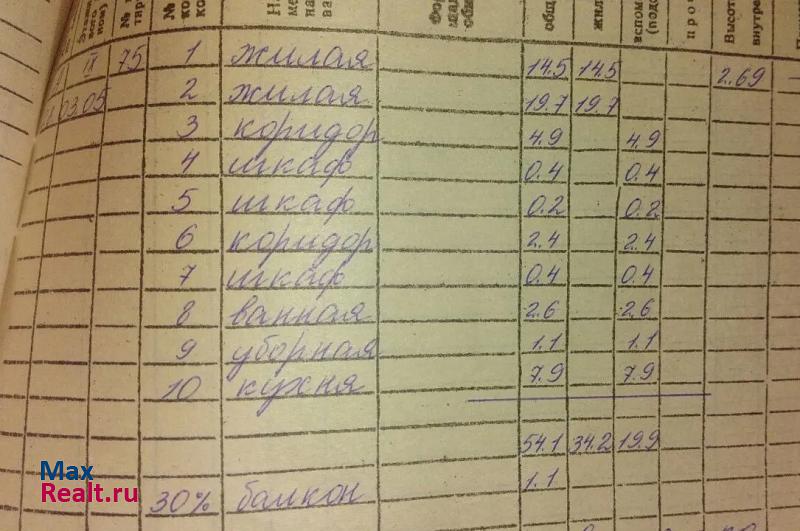 №
тир
№
ко
ко
на
ва
Фо
общ
жил
вспом
(подс
про
Высот
внутре
IV 75 1 жилая 14.5 14.5 2.69
03.05 2 жилая 19.7 19.7
3 коридор 4.9 4.9
4 шкаф 0.4 0.4
5 шкаф 0.2 0.2
6 коридор 2.4 2.4
7 шкаф 0.4 0.4
8 ванная 2.6 2.6
9 уборная 1.1 1.1
10 кухня 7.9 7.9
54.1 34.2 19.9
30% балкон 1.1
Max
Realt.ru